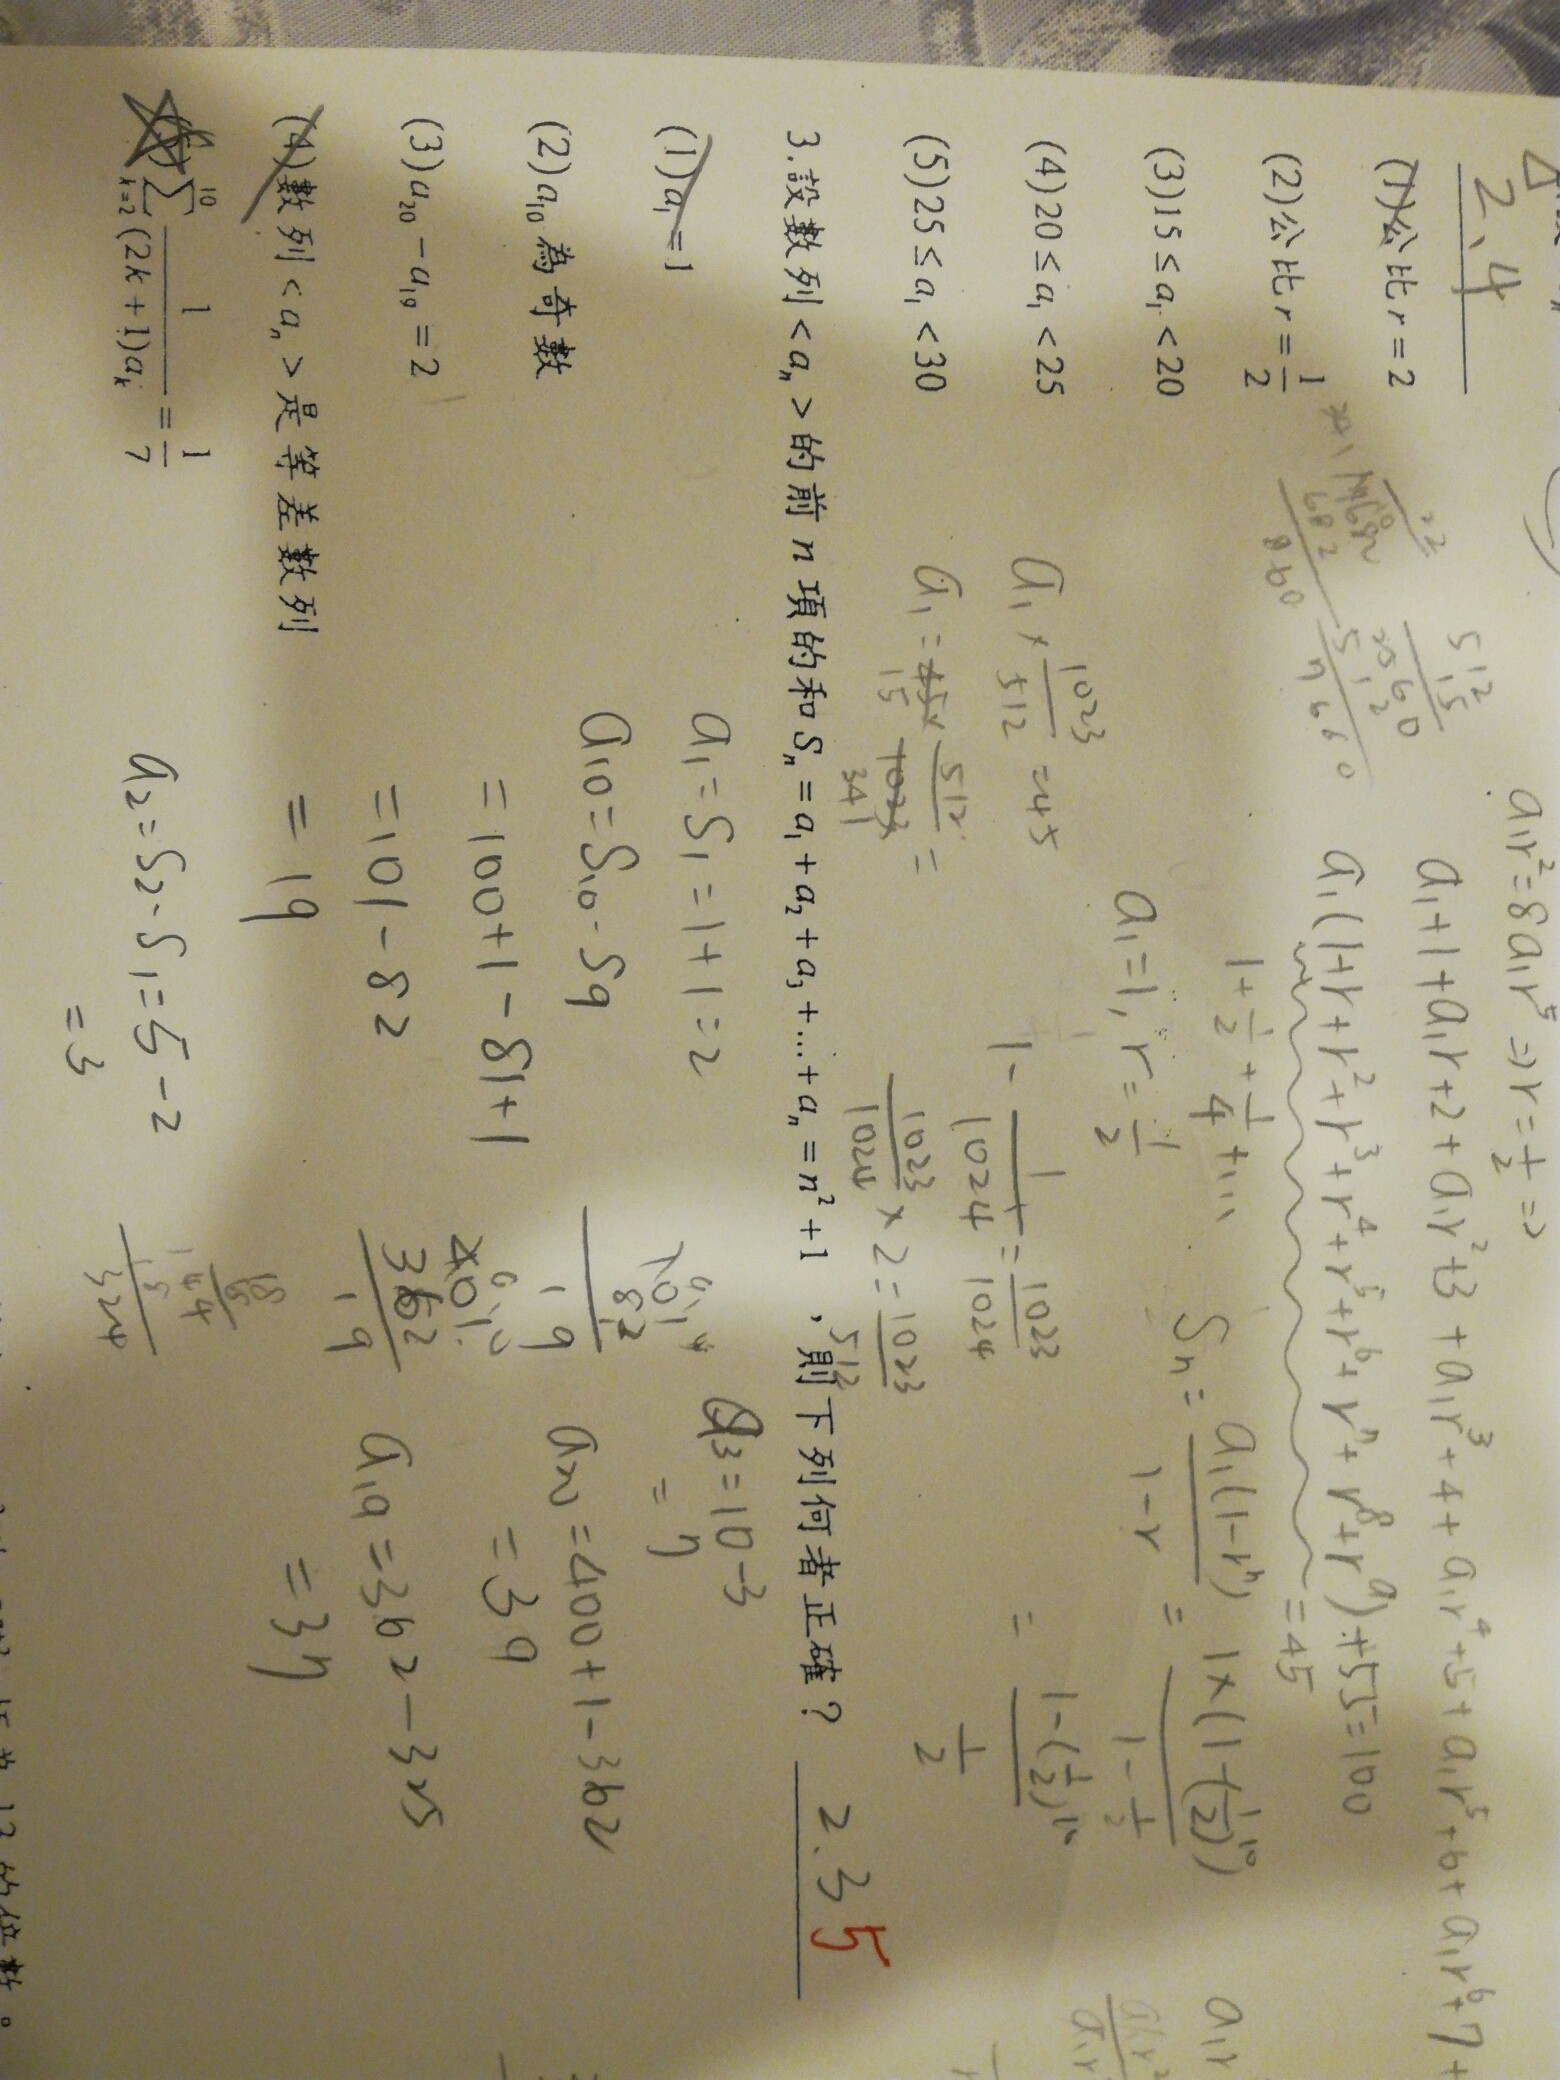 2、4
(1)公比r=2
(2)公比r=1/2
(3)15≤a₁<20
(4)20≤a₁<25
(5)25≤a₁<30
a₁r²=8a₁r⁵⇒r=1/2⇒
a₁+1+a₁r+2+a₁r²+3+a₁r³+4+a₁r⁴+5+a₁r⁵+6+a₁r⁶+7+
a₁(1+r+r²+r³+r⁴+r⁵+r⁶+r⁷+r⁸+r⁹)+55=100
=45
1+1/2+1/4+...
a₁=1, r=1/2
Sn=a₁(1-rⁿ)/1-r = 1×(1-(1/2)¹⁰)/1-1/2
= 1-(1/2)¹⁰/1/2
1-1/1024=1023/1024
1023/1024×2=1023/512
a₁×1023/512=45
a₁=45×512/1023=
15 341
512
15
2560
512
7680
682
860
3.設數列<aₙ>的前n項的和Sₙ=a₁+a₂+a₃+...+aₙ=n²+1，則下列何者正確？ 2.3 5
(1)a₁=1
(2)a₁₀為奇數
(3)a₂₀-a₁₉=2
(4)數列<aₙ>是等差數列
(5)∑ₖ₌₂¹⁰ 1/(2k+1)aₖ=1/7
a₁=S₁=1+1=2
a₁₀=S₁₀-S₉
=100+1-81+1
=101-82
=19
a₂=S₂-S₁=5-2
=3
101
82
19
401
362
19
144
18
324
a₃=10-5
a₂₀=400+1-362
=39
a₁₉=362-325
=37